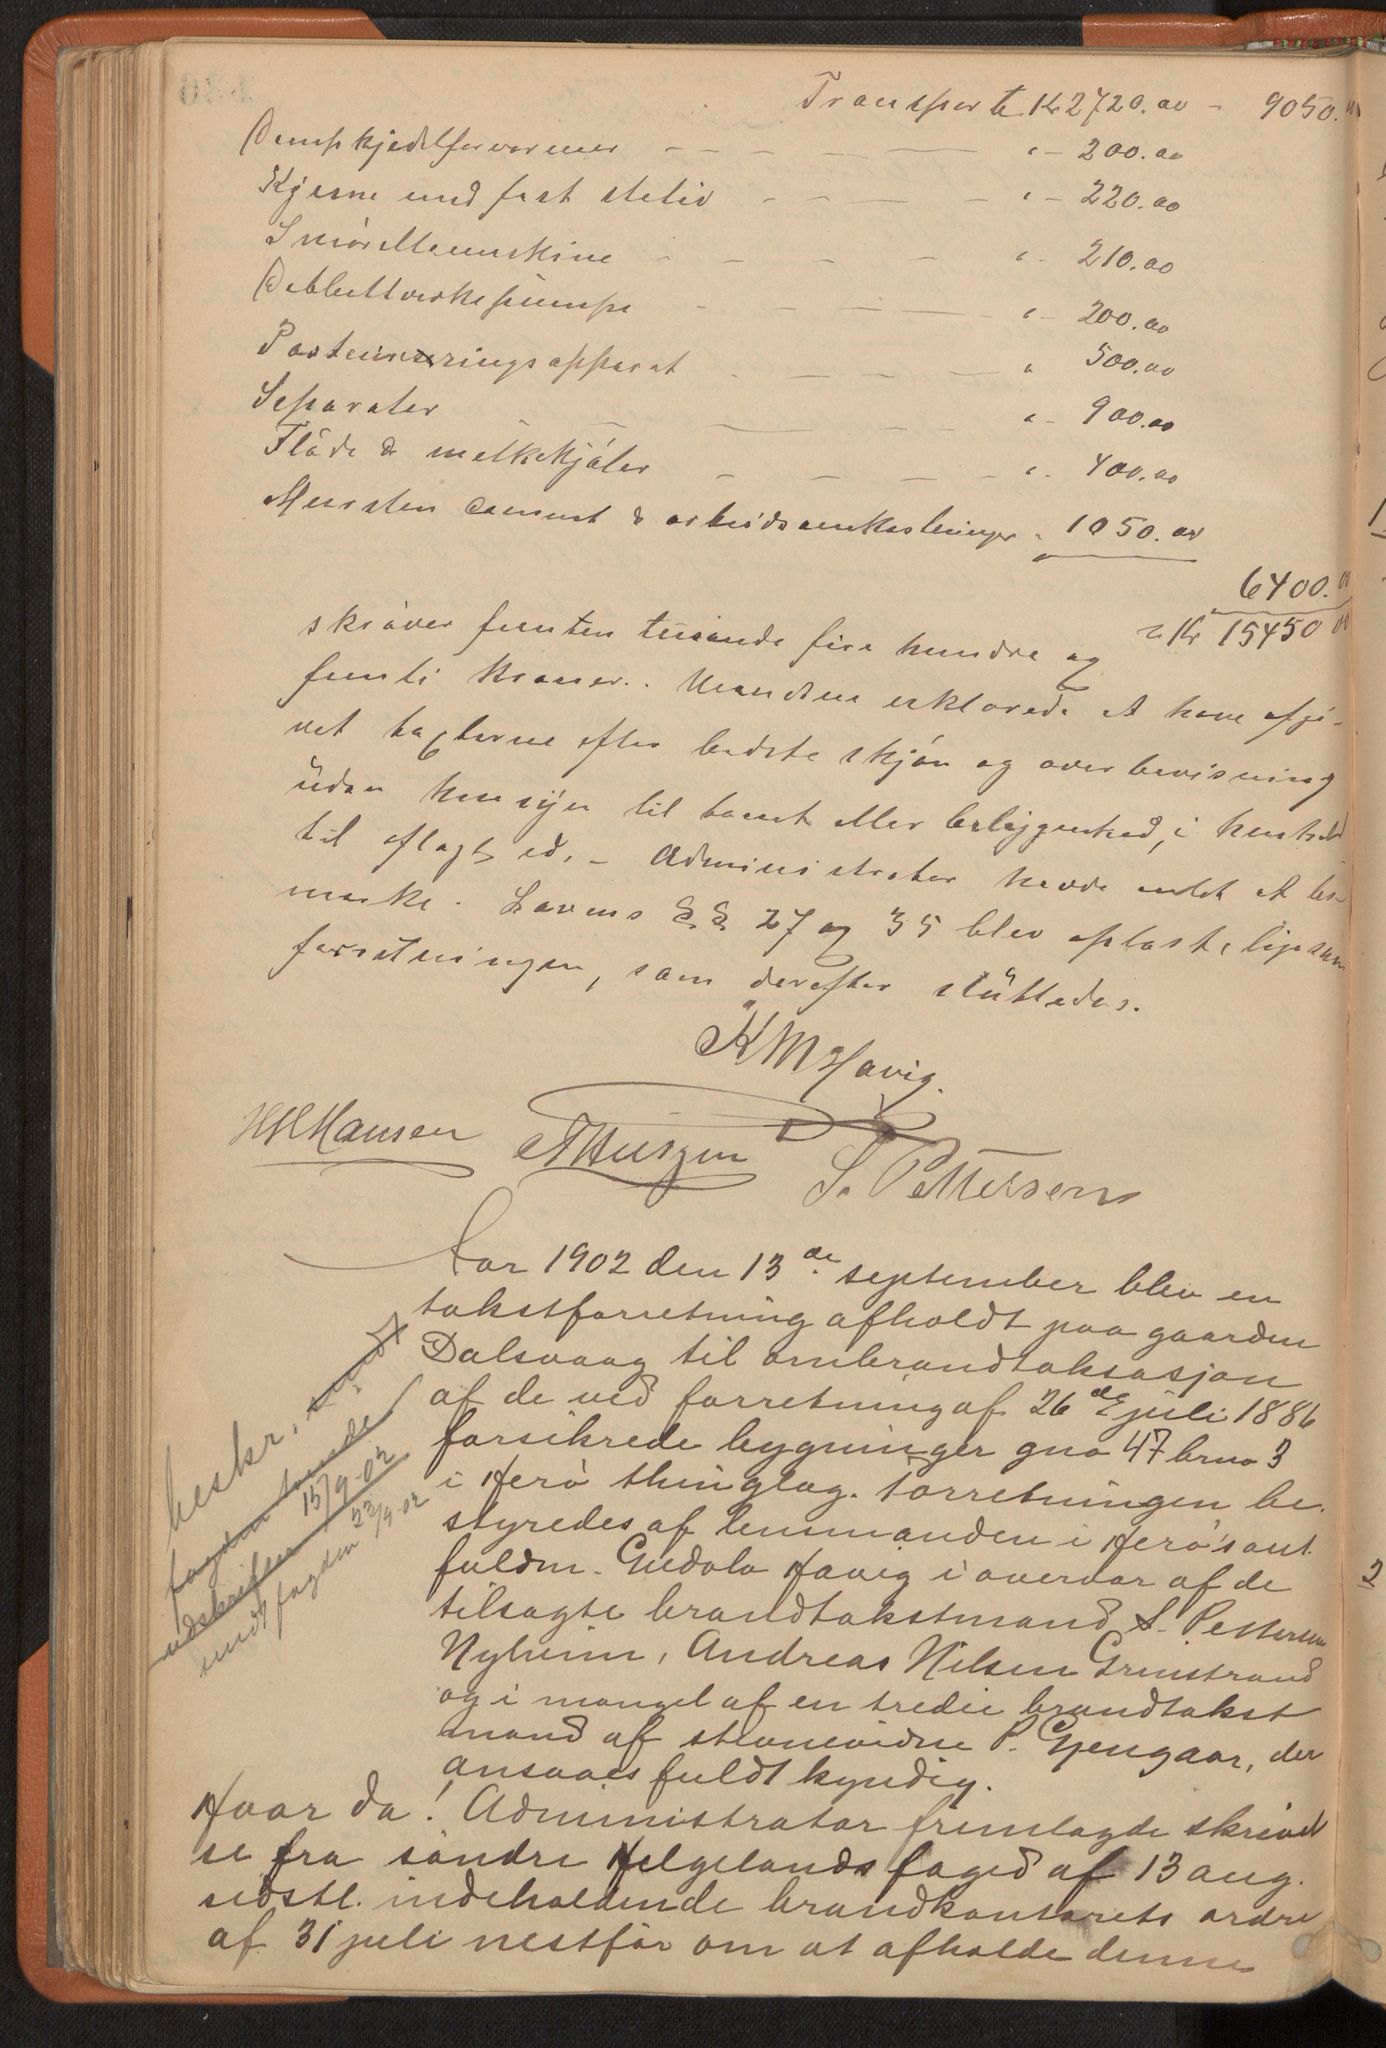 Transport Kr 2720.00 - 9050.00
Dampkjedelforvarmer — — — — — " - 200.00
Kjerne med fast stativ - - - - - " - 220.00
Smøræltemaskine - - - - - " - 210.00
Dobbeltvirkepumpe - - - - " - 200.00
Pasteuriseringsapparat - — — — " 500.00
Separator — — — — " - 900.00
Fløde & melkekjøler — — — — " - 400.00
Mursten cement & arbeidsomkostninger " 1050.00
6400.00
= Kr 15450 00
skriver femten tusinde fire hundre og
femti kroner. Mændene erklærede at have afgi-
vet taxterne efter bedste skjøn og overbevisning
uden hensyn til tomt eller beliggenhed, i henhold
til aflagt ed. - Administrator havde intet at be-
mærke. Lovens §§ 27 og 35 blev oplæst ligesom
forretningen, som derefter sluttedes.
K M Havig.
HHHansen
S. Pettersen
Aar 1902 den 13de september blev en
takstforretning afholdt paa gaarden
Dalsvaag til ombrandtaksasjon
af de ved forretning af 26de juli 1886
forsikrede bygninger gno 47 brno 3
i Herø thinglag. Forretningen be-
styredes af lensmanden i Herø's aut.
fuldm. Gudolv Havig i overvær af de
tilsagte brandtakstmænd S. Pettersen
Nyheim, Andreas Nilsen Grinstrand
og i mangel af en tredie brandtakst
mand af stevnevidne P. Gjengaar, der
ansaaes fuldt kyndig.
beskr. sendt
fogden tirsdel
15/9-02
udskriften
22/9-02
sendt fogden
Hvor da! Administrator fremlagde skrivel
se fra søndre Helgelands foged af 13 aug.
sidstl. indeholdende brandkontorets ordre
af 31 juli nestfør om at afholde denne